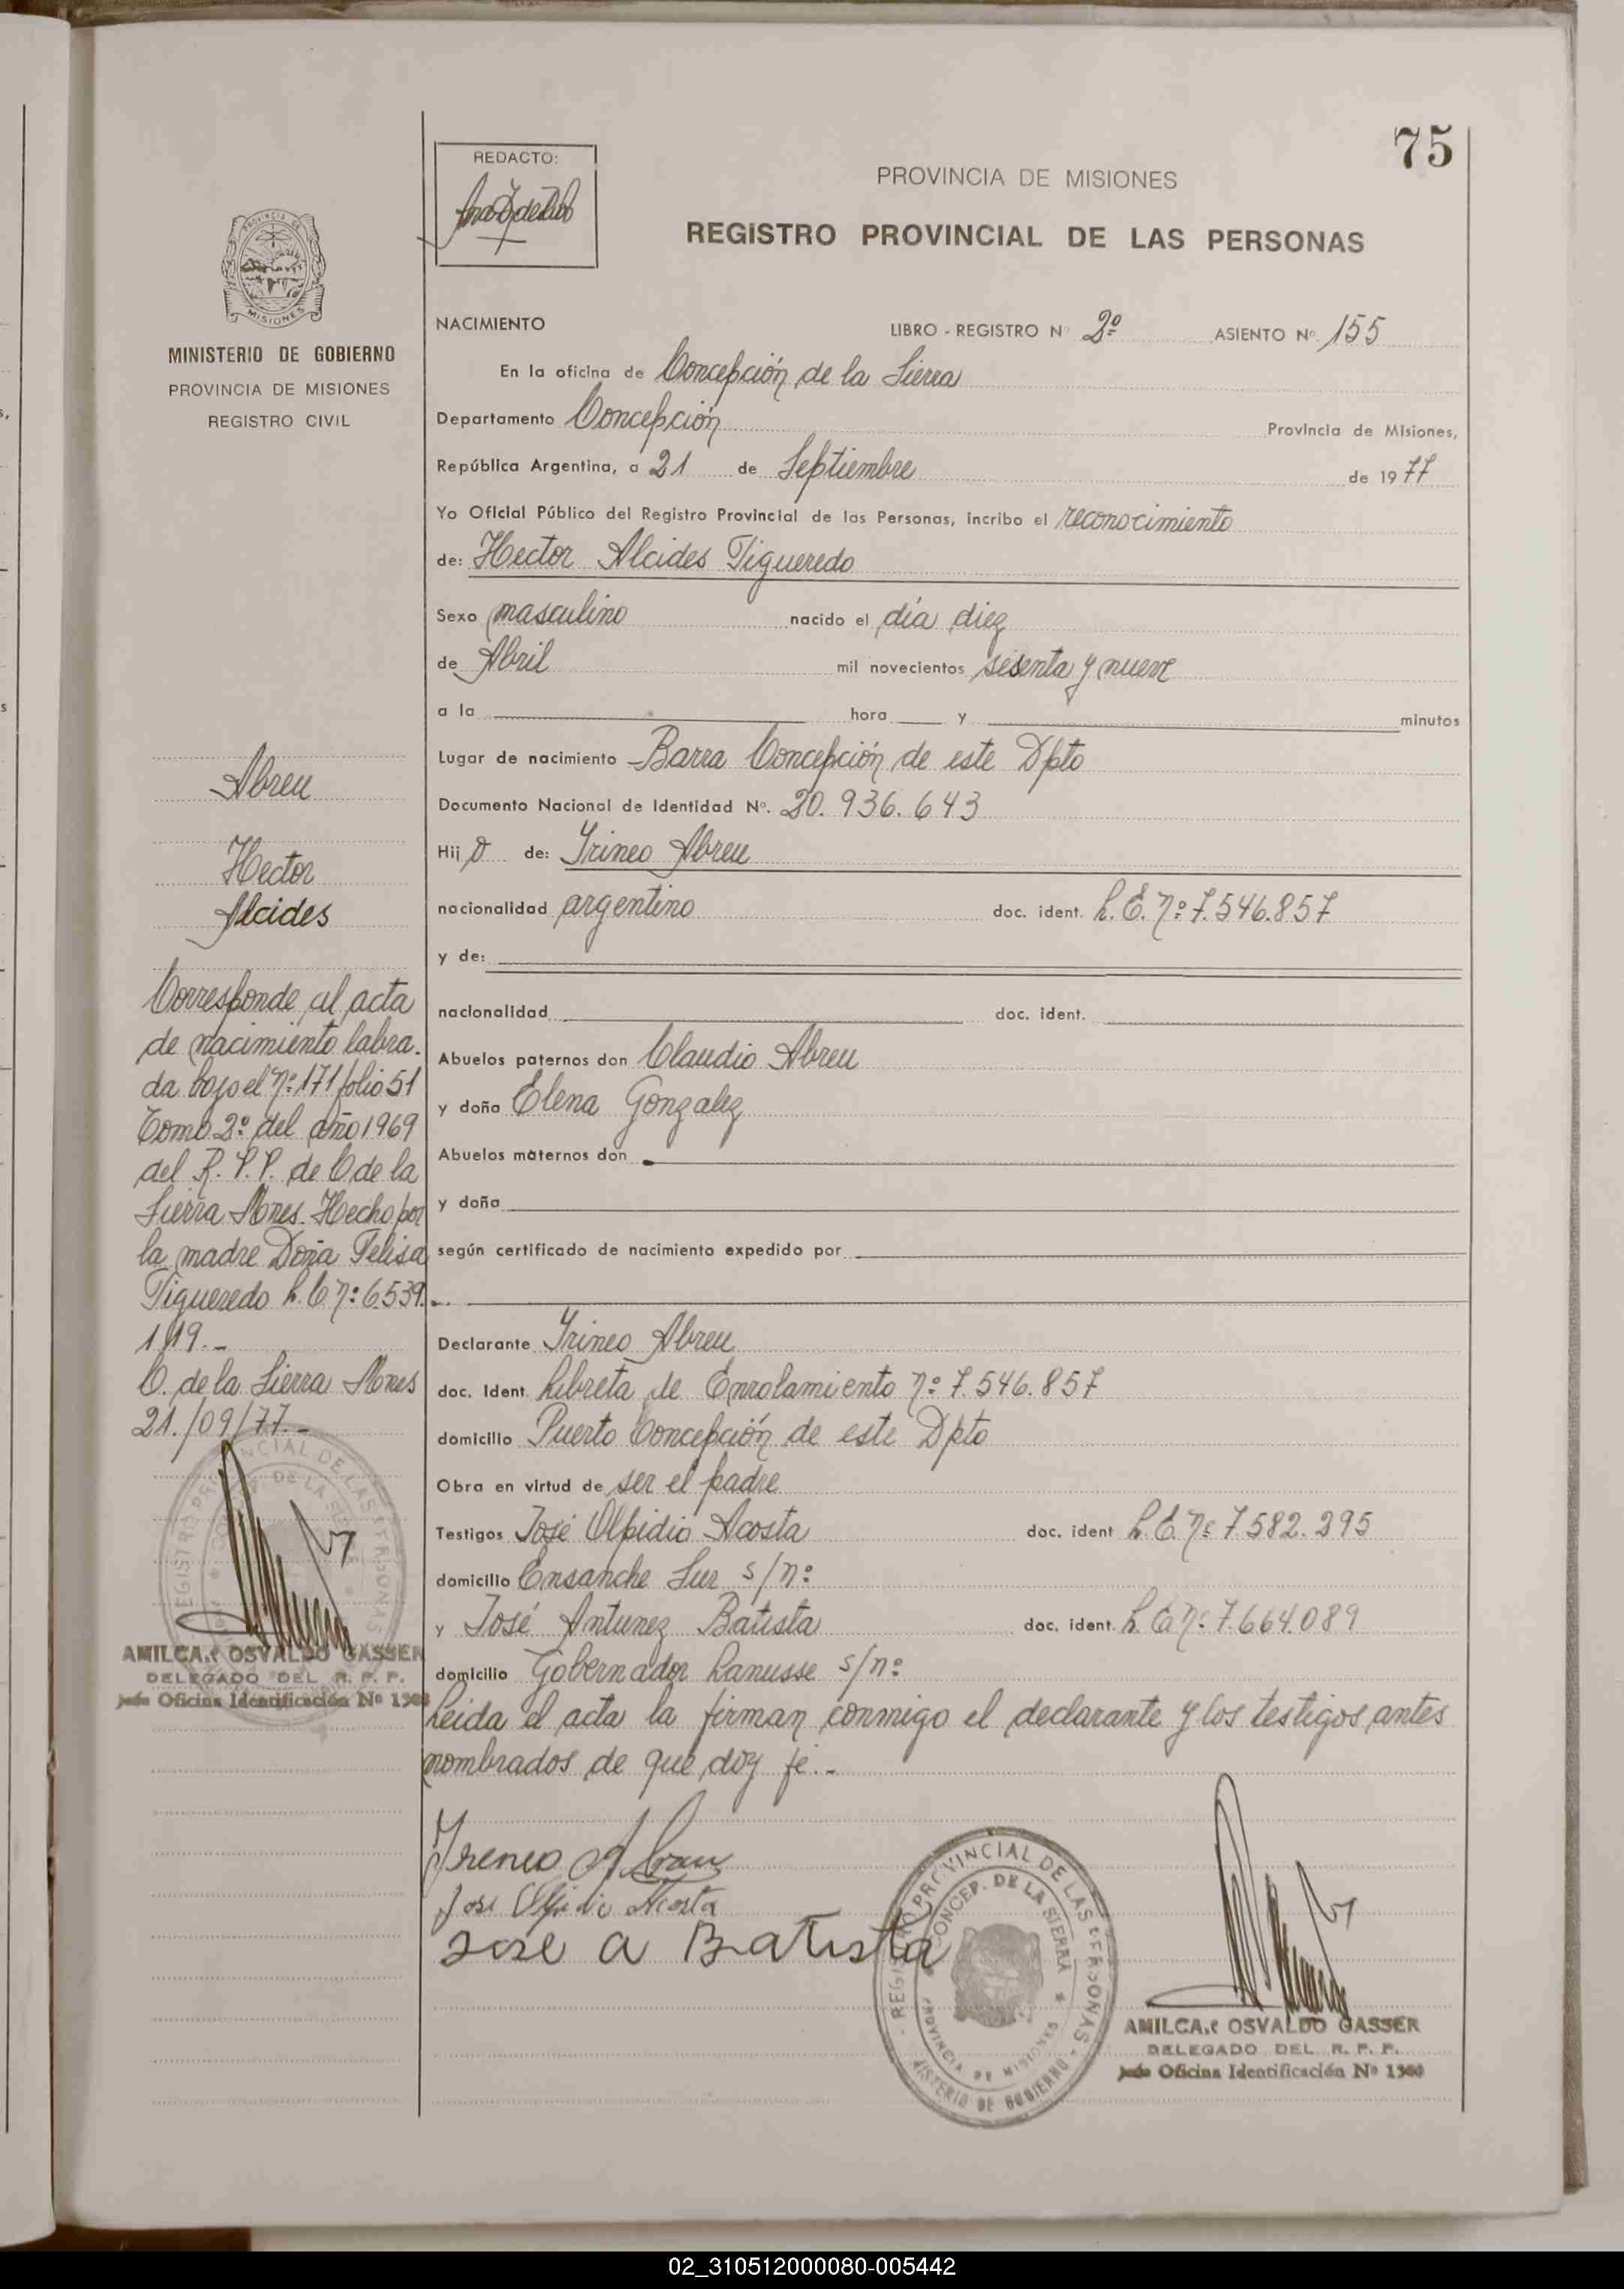 75
REDACTO:
PROVINCIA DE MISIONES
REGISTRO PROVINCIAL DE LAS PERSONAS
MISIONES
MINISTERIO DE GOBIERNO
PROVINCIA DE MISIONES
REGISTRO CIVIL
NACIMIENTO LIBRO - REGISTRO Nº 2º ASIENTO Nº 155
En la oficina de Concepción de la Sierra
Departamento Concepción Provincia de Misiones,
República Argentina, a 21 de Septiembre de 1977
Yo Oficial Público del Registro Provincial de las Personas, incribo el reconocimiento
de: Hector Alcides Figueredo
Sexo masculino nacido el día diez
de Abril mil novecientos sesenta y nueve
a la hora y minutos
Lugar de nacimiento Barra Concepción de este Dpto
Documento Nacional de Identidad Nº. 20.936.643
Hij o de: Irineo Abreu
nacionalidad argentino doc. ident. L.E. nº 7.546.857
y de:
nacionalidad doc. ident.
Abuelos paternos don Claudio Abreu
y doña Elena Gonzalez
Abuelos maternos don
y doña
según certificado de nacimiento expedido por
Declarante Irineo Abreu
doc. Ident. Libreta de Enrolamiento nº 7.546.857
domicilio Puerto Concepción de este Dpto
Obra en virtud de ser el padre
Testigos José Olpidio Acosta doc. ident L.E. nº 7.582.295
domicilio Ensanche Sur s/nº
y José Antunez Batista doc. ident. L.E. nº 7.664.089
domicilio Gobernador Lanusse s/nº
Leida el acta la firman conmigo el declarante y los testigos antes
nombrados de que doy fé.-
Ireneo Abreu
José Olpidio Acosta
Jose a Batista
REGISTRO PROVINCIAL DE LAS PERSONAS
CONCEP. DE LA SIERRA
PROVINCIA DE MISIONES
MINISTERIO DE GOBIERNO
AMILCAR OSVALDO GASSER
DELEGADO DEL R. P. P.
Jefe Oficina Identificación Nº 1508
Abreu
Hector
Alcides
Corresponde al acta
de nacimiento labra-
da bajo el nº 171 folio 51
Tomo 2º del año 1969
del R.P.P. de C de la
Sierra Mnes. Hecho por
la madre Doña Felisa
Figueredo L.C nº 6.539.
119.-
C. de la Sierra Mnes
21/09/77.-
AMILCAR OSVALDO GASSER
DELEGADO DEL R. P. P.
Jefe Oficina Identificación Nº 1508
02_310512000080-005442